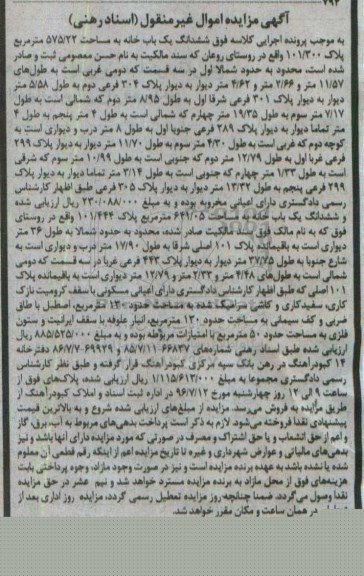 آگهی مزایده اموال غیرمنقول (اسناد رهنی)
به موجب پرونده اجرایی کلاسه فوق ششدانگ یک باب خانه به مساحت ۵۷۵/۲۲ مترمربع
پلاک ۱۰۱/۳۰۰ واقع در روستای روعان که سند مالکیت به نام حسن معصومی ثبت و صادر
شده است، محدود به حدود شمالا اول در سه قسمت که دومی غربی است به طول‌های
۱۱/۵۷ متر و ۲/۶۶ متر و ۴/۶۲ متر دیوار به دیوار پلاک ۳۰۴ فرعی دوم به طول ۵/۵۸ متر
دیوار به دیوار پلاک ۳۰۱ فرعی شرقا اول به طول ۸/۹۵ متر دوم که شمالی است به طول
۷/۱۷ متر سوم به طول ۱۹/۳۵ متر چهارم که شمالی است به طول ۴ متر پنجم به طول ۴
متر تماما دیوار به دیوار پلاک ۲۸۹ فرعی جنوبا اول به طول ۸ متر درب و دیواری است به
کوچه دوم که غربی است به طول ۴/۳۰ متر سوم به طول ۱۱/۷۰ متر دیوار به دیوار پلاک ۲۹۹
فرعی غربا اول به طول ۱۲/۷۹ متر دوم که جنوبی است به طول ۱۰/۹۹ متر سوم که شرقی
است به طول ۱/۳۳ متر چهارم که جنوبی است به طول ۳/۱۴ متر تماما دیوار به دیوار پلاک
۲۹۹ فرعی پنجم به طول ۱۳/۳۲ متر دیوار به دیوار پلاک ۳۰۵ فرعی طبق اظهار کارشناس
رسمی دادگستری دارای اعیانی مخروبه بوده و به مبلغ ۲۳۰/۰۸۸/۰۰۰ ریال ارزیابی شده
و ششدانگ یک باب خانه به مساحت ۶۴۹/۰۵ مترمربع پلاک ۱۰۱/۴۴۴ واقع در روستای
فوق که به نام مالک فوق سند مالکیت صادر شده، محدود به حدود شمالا به طول ۳۶ متر
دیواری است به باقیمانده پلاک ۱۰۱ اصلی شرقا به طول ۱۷/۹۰ متر درب و دیواری است به
شارع جنوبا به طول ۳۷/۷۵ متر دیوار به دیوار پلاک ۴۴۳ فرعی غربا در سه قسمت که دومی
شمالی است به طول‌های ۴/۴۸ متر و ۲/۳۳ متر و ۱۲/۷۹ متر دیواری است به باقیمانده پلاک
۱۰۱ اصلی که طبق اظهار کارشناس دادگستری دارای اعیانی مسکونی با سقف کرومیت نازک
کاری، سفیدکاری و کاشی سرامیک شده به مساحت حدود ۱۳۰ مترمربع، اصطبل با طاق
ضربی و کف سیمانی به مساحت حدود ۱۳۰ مترمربع، انبار علوفه با سقف ایرانیت و ستون
فلزی به مساحت حدود ۵۰ مترمربع با امتیازات مربوطه بوده و به مبلغ ۸۸۵/۵۲۵/۰۰۰ ریال
ارزیابی شده طبق اسناد رهنی شماره‌های ۶۶۸۳۷-۸۵/۷/۱۱ و ۶۹۹۲۹-۸۶/۷/۷ دفترخانه
۱۴ کبودرآهنگ در رهن بانک سپه مرکزی کبودرآهنگ قرار گرفته و طبق نظر کارشناس
رسمی دادگستری مجموعا به مبلغ ۱/۱۱۵/۶۱۳/۰۰۰ ریال ارزیابی شده، پلاک‌های فوق از
ساعت ۹ الی ۱۲ روز چهارشنبه مورخ ۹۶/۷/۱۲ در اداره ثبت اسناد و املاک کبودرآهنگ از
طریق مزایده به فروش می‌رسد. مزایده از مبلغ‌های ارزیابی شده شروع و به بالاترین قیمت
پیشنهادی نقدا فروخته می‌شود. لازم به ذکر است پرداخت بدهی‌های مربوط به آب، برق، گاز
و اعم از حق انشعاب و یا حق اشتراک و مصرف در صورتی که مورد مزایده دارای آنها باشد و نیز
بدهی‌های مالیاتی و عوارض شهرداری و غیره تا تاریخ مزایده اعم از اینکه رقم قطعی آن معلوم
شده یا نشده باشد به عهده برنده مزایده است و نیز در صورت وجود مازاد، وجوه پرداختی بابت
هزینه‌های فوق از محل مازاد به برنده مزایده مسترد خواهد شد و نیم عشر در حق مزایده
نقدا وصول می‌گردد. ضمنا چنانچه روز مزایده تعطیل رسمی گردد، مزایده روز اداری بعد از
در همان ساعت و مکان مقرر خواهد شد.